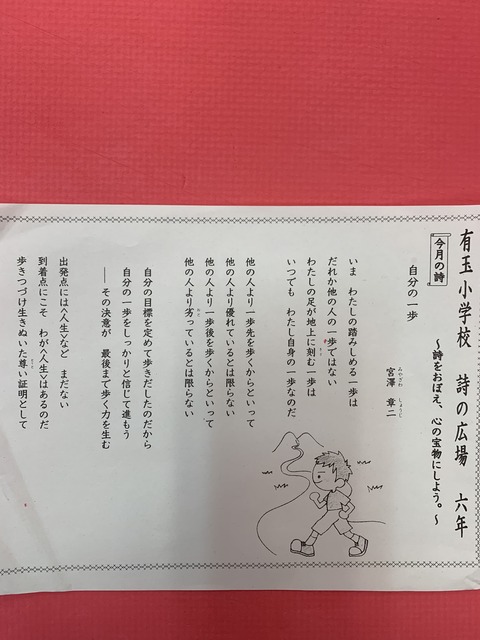 有玉小学校 詩の広場 六年
～詩をおぼえ、心の宝物にしよう。～
今月の詩
自分の一歩
宮澤 章二
みやざわ しょうじ
いま わたしの踏みしめる一歩は
だれか他の人の一歩ではない
わたしの足が地上に刻む一歩は
いつでも わたし自身の一歩なのだ
他の人より一歩先を歩くからといって
他の人より優れているとは限らない
他の人より一歩後を歩くからといって
他の人より劣っているとは限らない
自分の目標を定めて歩きだしたのだから
自分の一歩をしっかりと信じて進もう
――その決意が 最後まで歩く力を生む
出発点には〈人生〉など まだない
到着点にこそ わが〈人生〉はあるのだ
歩きつづけ生きぬいた尊い証明として